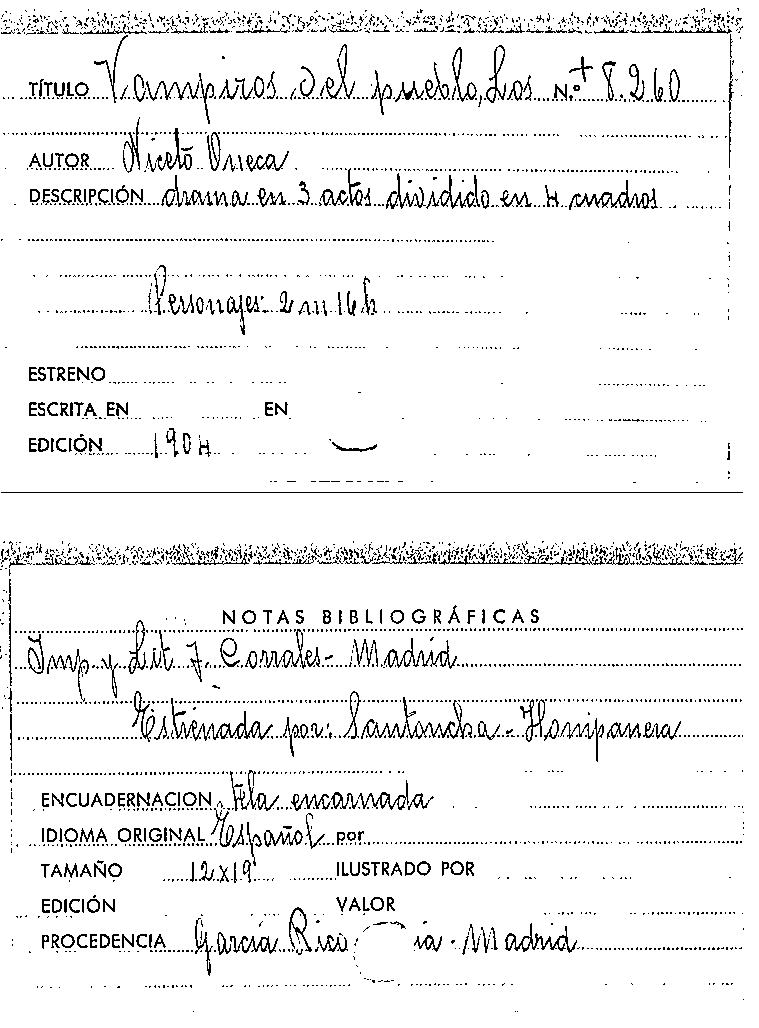 TÍTULO Vampiros del pueblo, Los N.º + 8.260
AUTOR Niceto Oneca
DESCRIPCIÓN drama en 3 actos dividido en 4 cuadros
Personajes: 2 m 16 h
ESTRENO
ESCRITA EN EN
EDICIÓN 1904
NOTAS BIBLIOGRÁFICAS
Imp y Lit J. Corrales - Madrid
Estrenada por: Santoncha - Hompanera
ENCUADERNACION tela encarnada
IDIOMA ORIGINAL Español por
TAMAÑO 12x19 ILUSTRADO POR
EDICIÓN VALOR
PROCEDENCIA García Rico ia - Madrid